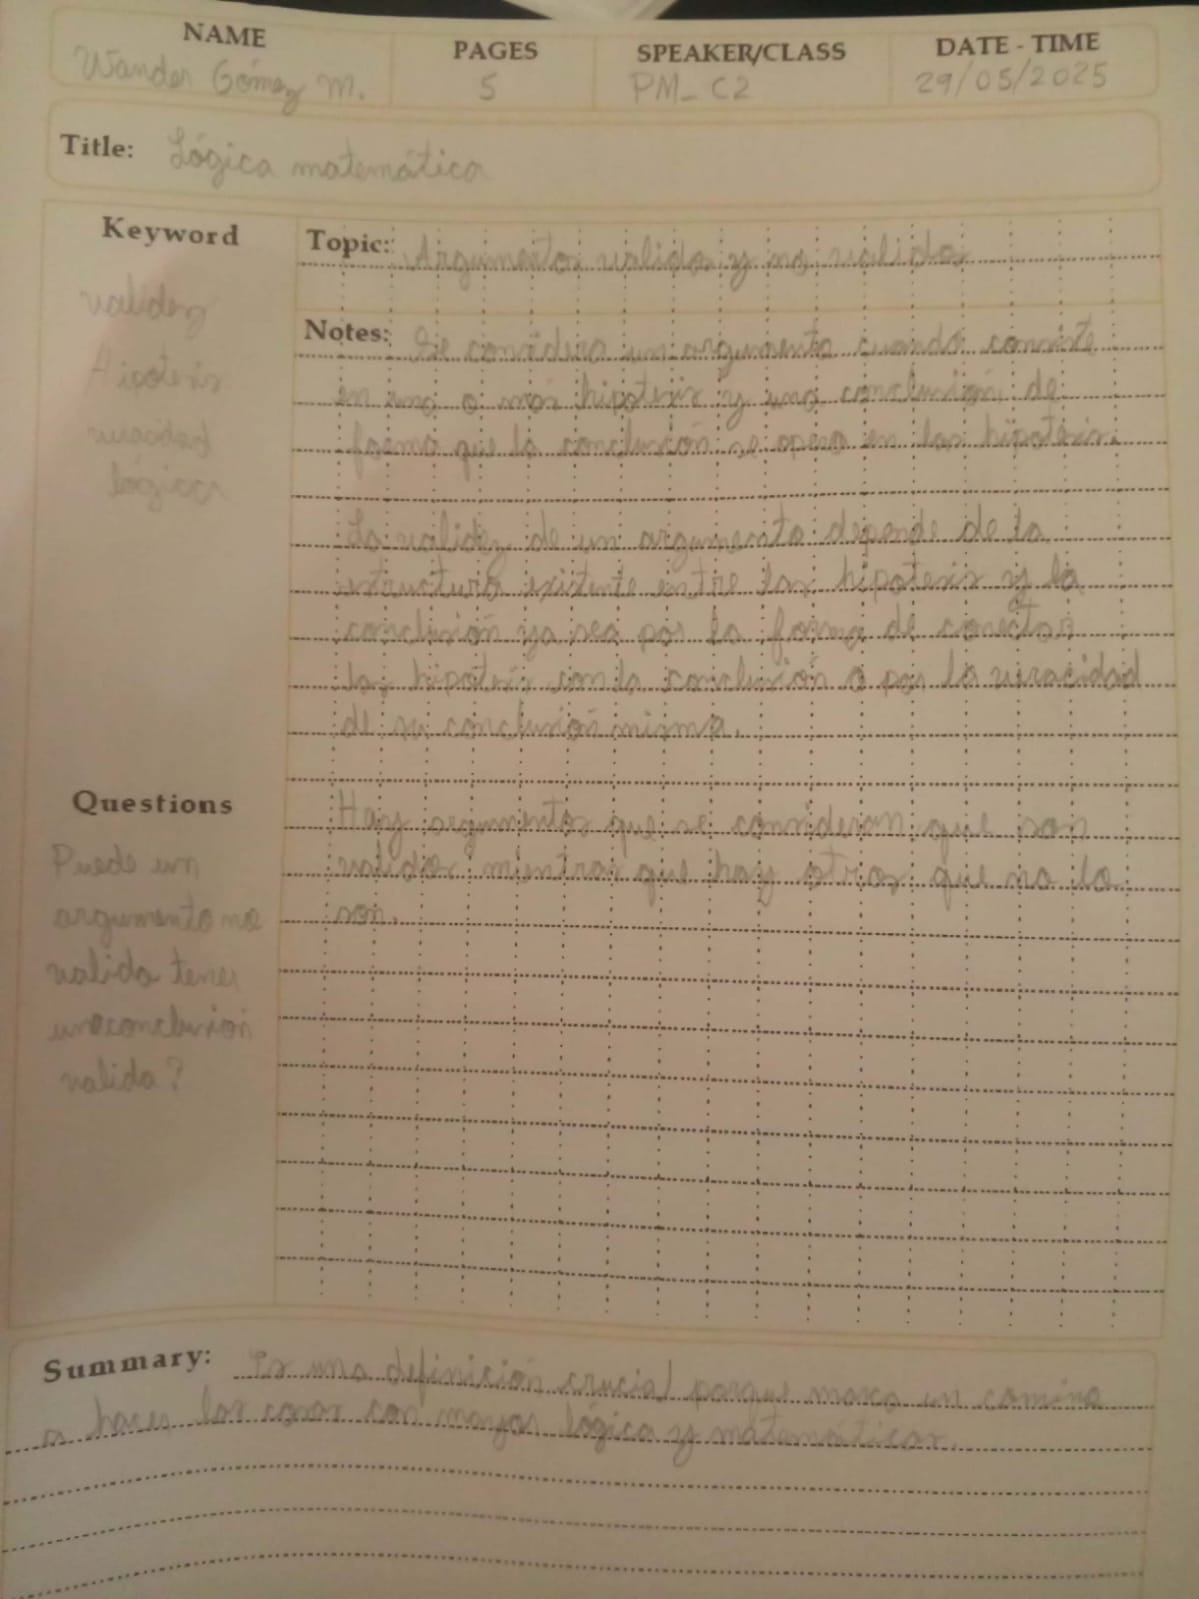 NAME PAGES SPEAKER/CLASS DATE - TIME
Wander Gómez M. 5 PM_C2 29/05/2025
Title: Lógica matemática
Keyword
validez
Hipotesis
veracidad
lógica
Topic: Argumentos validos y no validos
Notes: Se considera un argumento cuando consiste
en una o más hipotesis y una conclusión, de
forma que la conclusión se apoya en las hipotesis.
La validez de un argumento depende de la
estructura existente entre las hipotesis y la
conclusión ya sea por la forma de conectar
las hipotesis con la conclusión o por la veracidad
de su conclusión misma.
Hay argumentos que se consideran que son
validos mientras que hay otros que no lo
son.
Questions
Puede un
argumento no
valido tener
una conclusión
valida?
Summary: Es una definición crucial porque marca un camino
a hacer las cosas con mayor lógica y matemáticas.